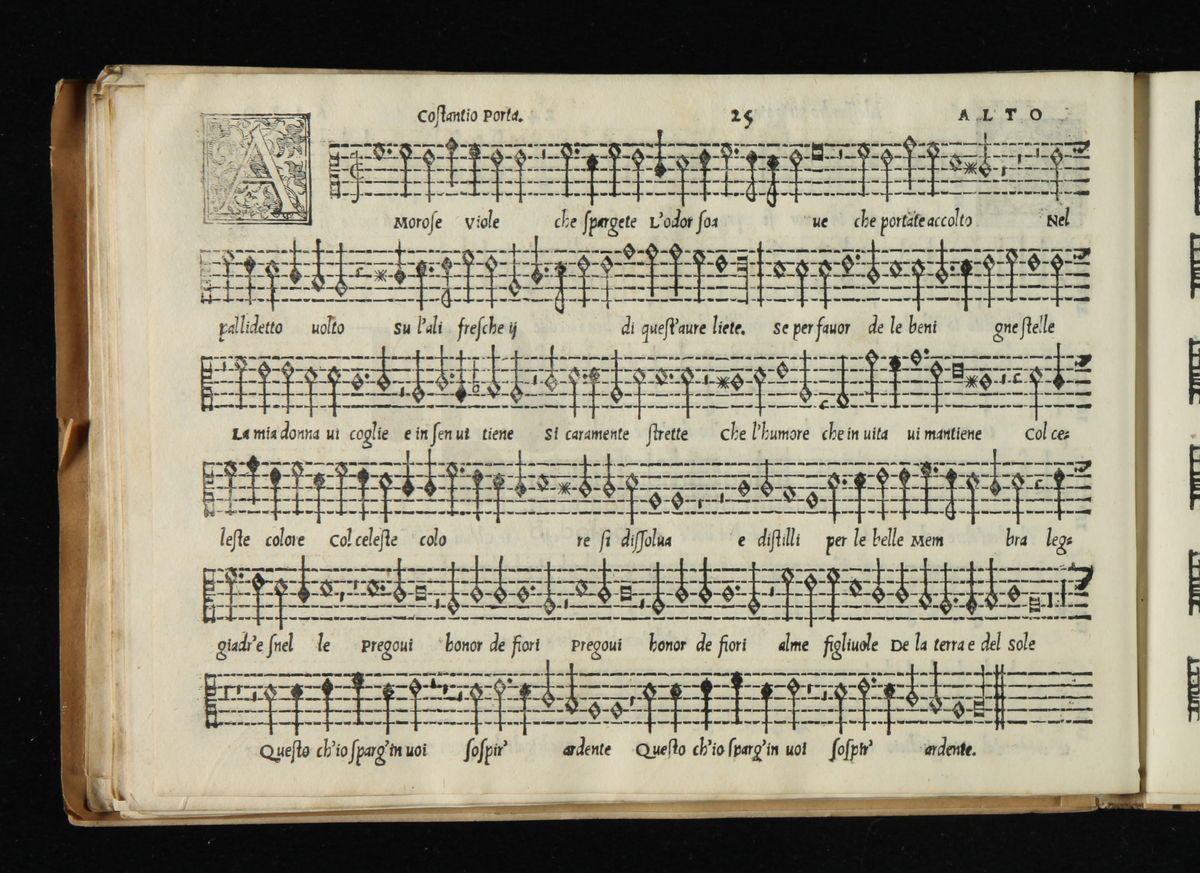 Coſtantio Porta. 25 ALTO
A
Moroſe Viole che ſpargete L'odor ſoa ue che portate accolto Nel
pallidetto uolto Su l'ali freſche ij di queſt'aure liete. Se per fauor de le beni gne ſtelle
La mia donna ui coglie e in ſen ui tiene Si caramente ſtrette Che l'humore che in uita ui mantiene Col ce=
leſte colore Col celeſte colo re ſi diſſolua e diſtilli per le belle Mem bra leg=
giadr'e ſnel le Pregoui honor de fiori Pregoui honor de fiori alme figliuole De la terra e del Sole
Queſto ch'io ſparg'in uoi ſoſpir' ardente Queſto ch'io ſparg'in uoi ſoſpir' ardente.